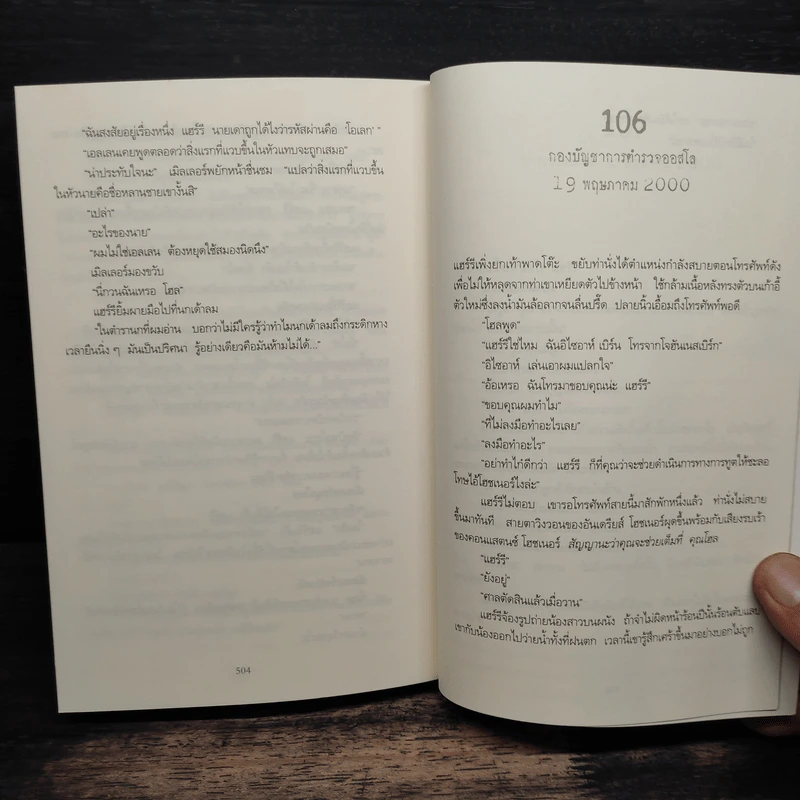 “ฉันสงสัยอยู่เรื่องหนึ่ง แฮร์รี นายเดาถูกได้ไงว่ารหัสผ่านคือ ‘โอเลก’ ”
“เอลเลนเคยพูดตลอดว่าสิ่งแรกที่แวบขึ้นในหัวแทบจะถูกเสมอ”
“น่าประทับใจนะ” เมิลเลอร์พยักหน้าชื่นชม “แปลว่าสิ่งแรกที่แวบขึ้น
ในหัวนายคือชื่อหลานชายเขางั้นสิ”
“เปล่า”
“อะไรของนาย”
“ผมไม่ใช่เอลเลน ต้องหยุดใช้สมองนิดนึง”
เมิลเลอร์มองขวับ
“นี่กวนฉันเหรอ โฮล”
แฮร์รียิ้มผายมือไปที่นกเด้าลม
“ในตำรานกที่ผมอ่าน บอกว่าไม่มีใครรู้ว่าทำไมนกเด้าลมถึงกระดิกหาง
เวลายืนนิ่ง ๆ มันเป็นปริศนา รู้อย่างเดียวคือมันห้ามไม่ได้...”
504
106
กองบัญชาการตำรวจออสโล
19 พฤษภาคม 2000
แฮร์รีเพิ่งยกเท้าพาดโต๊ะ ขยับท่านั่งได้ตำแหน่งกำลังสบายตอนโทรศัพท์ดัง
เพื่อไม่ให้หลุดจากท่าเขาเหยียดตัวไปข้างหน้า ใช้กล้ามเนื้อหลังทรงตัวบนเก้าอี้
ตัวใหม่ซึ่งลงน้ำมันล้อลากจนลื่นปรี๊ด ปลายนิ้วเอื้อมถึงโทรศัพท์พอดี
“โฮลพูด”
“แฮร์รีใช่ไหม ฉันอิไซอาห์ เบิร์น โทรจากโจฮันเนสเบิร์ก”
“อิไซอาห์ เล่นเอาผมแปลกใจ”
“อ้อเหรอ ฉันโทรมาขอบคุณน่ะ แฮร์รี”
“ขอบคุณผมทำไม”
“ที่ไม่ลงมือทำอะไรเลย”
“ลงมือทำอะไร”
“อย่าทำไก๋ดีกว่า แฮร์รี ก็ที่คุณว่าจะช่วยดำเนินการทางการทูตให้ชะลอ
โทษไอ้โฮชเนอร์ไงล่ะ”
แฮร์รีไม่ตอบ เขารอโทรศัพท์สายนี้มาสักพักหนึ่งแล้ว ท่านั่งไม่สบาย
ขึ้นมาทันที สายตาวิงวอนของอันเดรียส์ โฮชเนอร์ผุดขึ้นพร้อมกับเสียงรบเร้า
ของคอนแสตนซ์ โฮชเนอร์ สัญญานะว่าคุณจะช่วยเต็มที่ คุณโฮล
“แฮร์รี”
“ยังอยู่”
“ศาลตัดสินแล้วเมื่อวาน”
แฮร์รีจ้องรูปถ่ายน้องสาวบนผนัง ถ้าจำไม่ผิดหน้าร้อนปีนั้นร้อนตับแลบ
เขากับน้องออกไปว่ายน้ำทั้งที่ฝนตก เวลานี้เขารู้สึกเศร้าขึ้นมาอย่างบอกไม่ถูก